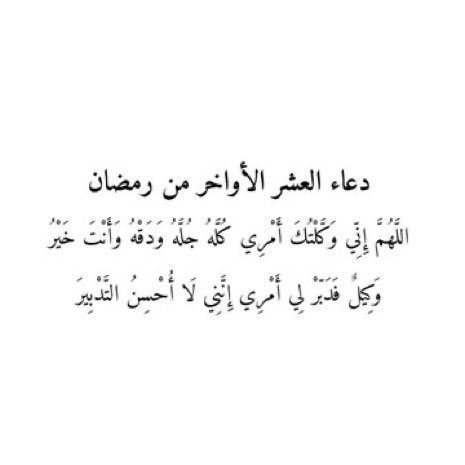 دعاء العشر الأواخر من رمضان
اللَّهُمَّ إِنِّي وَكَّلْتُكَ أَمْرِي كُلَّهُ جُلَّهُ وَدَقْهُ وَأَنْتَ خَيْرُ
وَكِيلٌ فَدَبِّرْ لِي أَمْرِي إِنَّنِي لَا أُحْسِنُ التَّدْبِيرَ